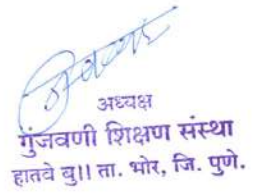 अध्यक्ष
गुंजवणी शिक्षण संस्था
हातवे बु।। ता. भोर, जि. पुणे.